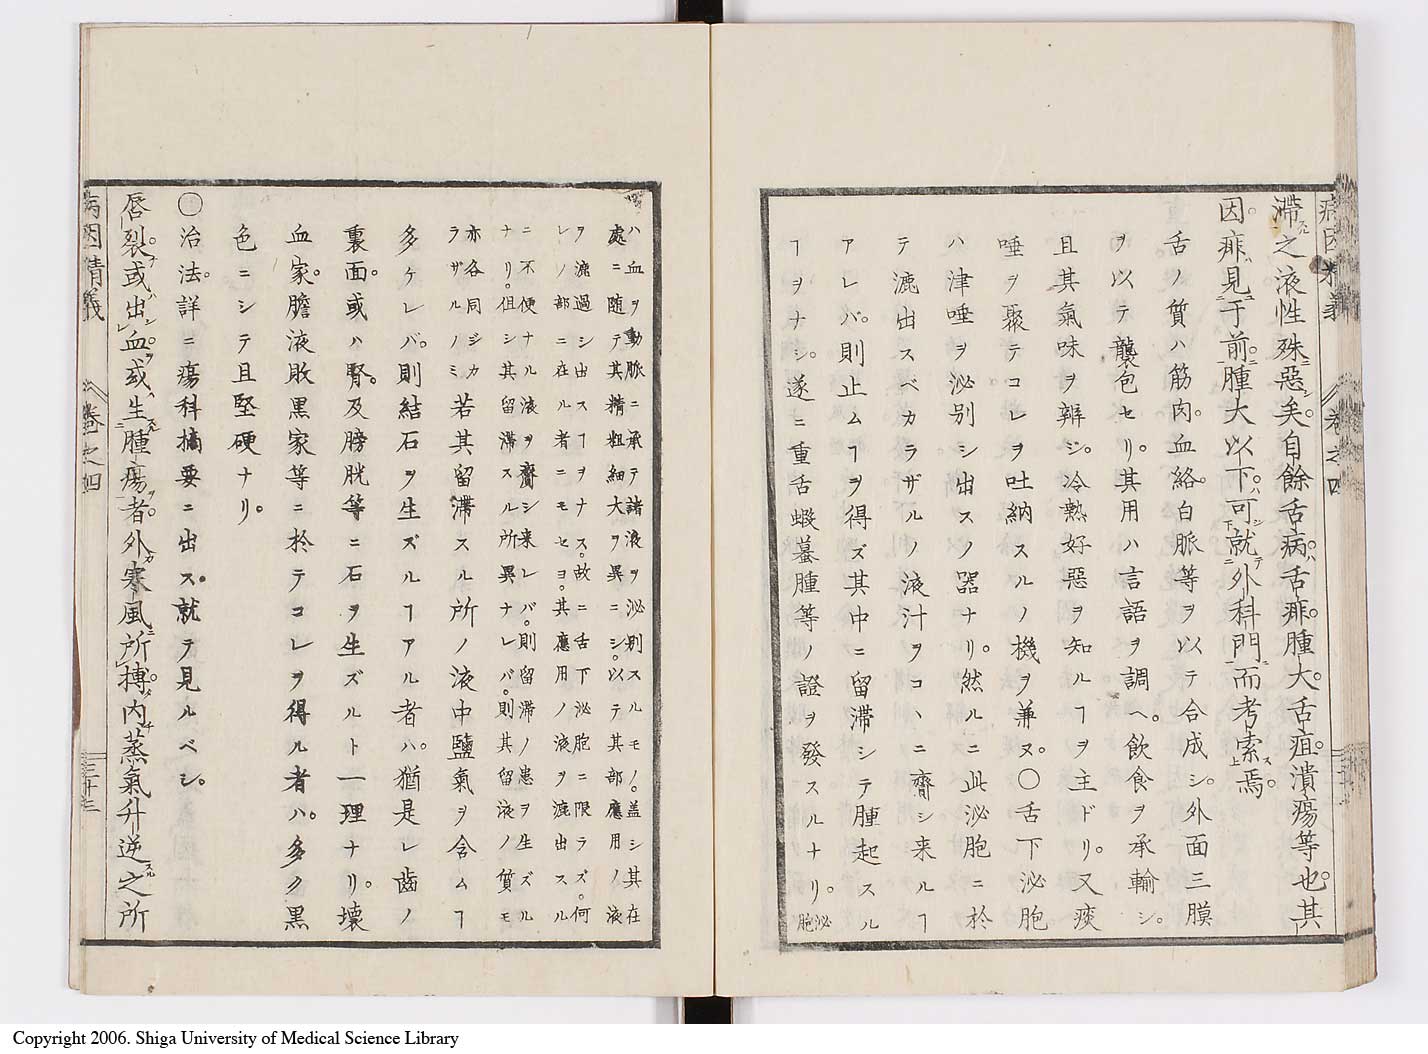 病因精義 卷之四
滯之液性殊惡矣。自餘舌病。舌痱。腫大。舌疽。潰瘍等也。其
因痱見于前。腫大以下。可就外科門而考索焉。
舌ノ質ハ筋肉。血絡。白脈等ヲ以テ合成シ。外面三膜
ヲ以テ襲包セリ。其用ハ言語ヲ調ヘ。飲食ヲ承輸シ。
且其氣味ヲ辨シ。冷熱好惡ヲ知ルヿヲ主ドリ。又痰
唾ヲ聚テコレヲ吐納スルノ機ヲ兼ヌ。〇舌下泌胞
ハ津唾ヲ泌別シ出スノ器ナリ。然ルニ此泌胞ニ於
テ漉出スベカラザルノ液汁ヲコヽニ齎シ来ルヿ
アレバ。則止ムヿヲ得ズ其中ニ留滯シテ腫起スル
ヿヲナシ。遂ニ重舌蝦蟇腫等ノ證ヲ發スルナリ。泌胞
ハ血ヲ動脈ニ承テ諸液ヲ泌別スルモノ。盖シ其在
處ニ随テ其精粗細大ヲ異ニシ。以テ其部應用ノ液
ヲ漉過シ出スヿヲナス。故ニ舌下泌胞ニ限ラズ。何
レノ部ニ在ル者ニモセヨ。其應用ノ液ヲ漉出スル
ニ不便ナル液ヲ齎シ来レバ。則留滯ノ患ヲ生ズル
ナリ。但シ其留滯スル所異ナレバ。則其留液ノ質モ
亦各同ジカ
ラザルノミ
若其留滯スル所ノ液中鹽氣ヲ含ムヿ
多ケレバ。則結石ヲ生ズルヿアル者ハ。猶是レ齒ノ
裏面。或ハ腎。及膀胱等ニ石ヲ生ズルト一理ナリ。壞
血家。膽液敗黒家等ニ於テコレヲ得ル者ハ。多ク黒
色ニシテ且堅硬ナリ。
〇治法。詳ニ瘍科摘要ニ出ス。就テ見ルベシ。
唇裂或出血。或生腫瘍者。外寒風所搏。内蒸氣升逆之所
病因精義 卷之四 二十三